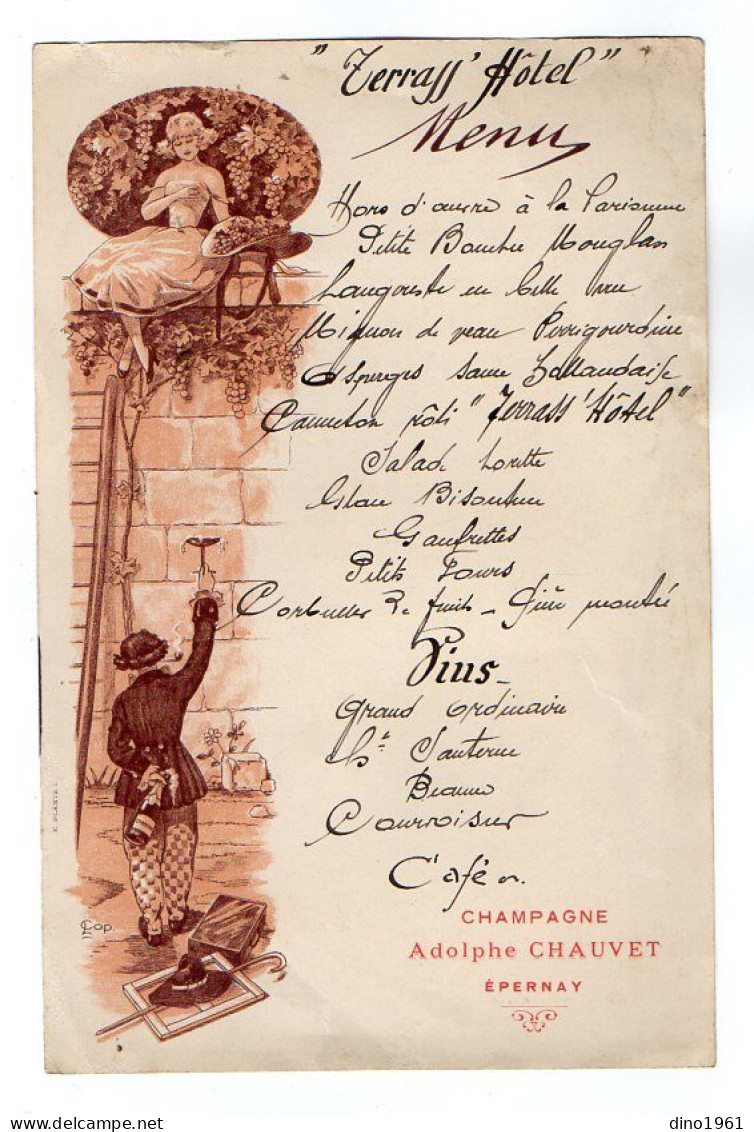 "Terrass' Hôtel"
Menu
Hors d'œuvre à la Parisienne
Petite Bouchée Mouglas
Langouste en Belle vue
Mignon de veau Perrigourdine
Asperges Sauce Hollandaise
Canneton rôti "Terrass' Hôtel"
Salade Lorette
Glace Bisontine
Gaufrettes
Petits Fours
Corbeilles de fruits - montée
Vins
Grand ordinaire
Ht Sauterne
Beaune
Courvoisier
Café
CHAMPAGNE
Adolphe CHAUVET
ÉPERNAY
E. PLANTET.
Cop.
dino1961